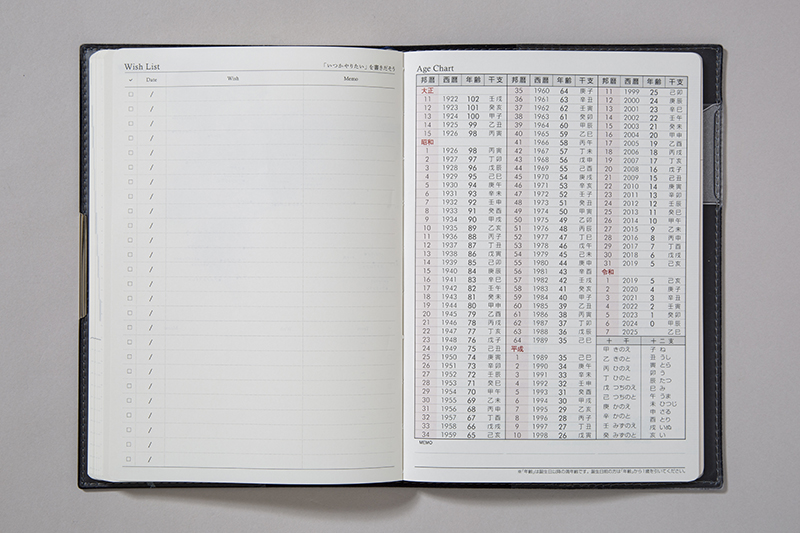 Wish List 「いつかやりたい」を書きだそう
✓ Date Wish Memo
/
/
/
/
/
/
/
/
/
/
/
/
/
/
/
/
/
/
/
/
/
/
/
/
/
/
Age Chart
邦暦 西暦 年齢 干支
大正
11 1922 102 壬戌
12 1923 101 癸亥
13 1924 100 甲子
14 1925 99 乙丑
15 1926 98 丙寅
昭和
1 1926 98 丙寅
2 1927 97 丁卯
3 1928 96 戊辰
4 1929 95 己巳
5 1930 94 庚午
6 1931 93 辛未
7 1932 92 壬申
8 1933 91 癸酉
9 1934 90 甲戌
10 1935 89 乙亥
11 1936 88 丙子
12 1937 87 丁丑
13 1938 86 戊寅
14 1939 85 己卯
15 1940 84 庚辰
16 1941 83 辛巳
17 1942 82 壬午
18 1943 81 癸未
19 1944 80 甲申
20 1945 79 乙酉
21 1946 78 丙戌
22 1947 77 丁亥
23 1948 76 戊子
24 1949 75 己丑
25 1950 74 庚寅
26 1951 73 辛卯
27 1952 72 壬辰
28 1953 71 癸巳
29 1954 70 甲午
30 1955 69 乙未
31 1956 68 丙申
32 1957 67 丁酉
33 1958 66 戊戌
34 1959 65 己亥
邦暦 西暦 年齢 干支
35 1960 64 庚子
36 1961 63 辛丑
37 1962 62 壬寅
38 1963 61 癸卯
39 1964 60 甲辰
40 1965 59 乙巳
41 1966 58 丙午
42 1967 57 丁未
43 1968 56 戊申
44 1969 55 己酉
45 1970 54 庚戌
46 1971 53 辛亥
47 1972 52 壬子
48 1973 51 癸丑
49 1974 50 甲寅
50 1975 49 乙卯
51 1976 48 丙辰
52 1977 47 丁巳
53 1978 46 戊午
54 1979 45 己未
55 1980 44 庚申
56 1981 43 辛酉
57 1982 42 壬戌
58 1983 41 癸亥
59 1984 40 甲子
60 1985 39 乙丑
61 1986 38 丙寅
62 1987 37 丁卯
63 1988 36 戊辰
64 1989 35 己巳
平成
1 1989 35 己巳
2 1990 34 庚午
3 1991 33 辛未
4 1992 32 壬申
5 1993 31 癸酉
6 1994 30 甲戌
7 1995 29 乙亥
8 1996 28 丙子
9 1997 27 丁丑
10 1998 26 戊寅
邦暦 西暦 年齢 干支
11 1999 25 己卯
12 2000 24 庚辰
13 2001 23 辛巳
14 2002 22 壬午
15 2003 21 癸未
16 2004 20 甲申
17 2005 19 乙酉
18 2006 18 丙戌
19 2007 17 丁亥
20 2008 16 戊子
21 2009 15 己丑
22 2010 14 庚寅
23 2011 13 辛卯
24 2012 12 壬辰
25 2013 11 癸巳
26 2014 10 甲午
27 2015 9 乙未
28 2016 8 丙申
29 2017 7 丁酉
30 2018 6 戊戌
31 2019 5 己亥
令和
1 2019 5 己亥
2 2020 4 庚子
3 2021 3 辛丑
4 2022 2 壬寅
5 2023 1 癸卯
6 2024 0 甲辰
7 2025 乙巳
十干
甲 きのえ
乙 きのと
丙 ひのえ
丁 ひのと
戊 つちのえ
己 つちのと
庚 かのえ
辛 かのと
壬 みずのえ
癸 みずのと
十二支
子 ね
丑 うし
寅 とら
卯 う
辰 たつ
巳 み
午 うま
未 ひつじ
申 さる
酉 とり
戌 いぬ
亥 い
MEMO
※「年齢」は誕生日以降の満年齢です。誕生日前の方は「年齢」から1歳を引いてください。